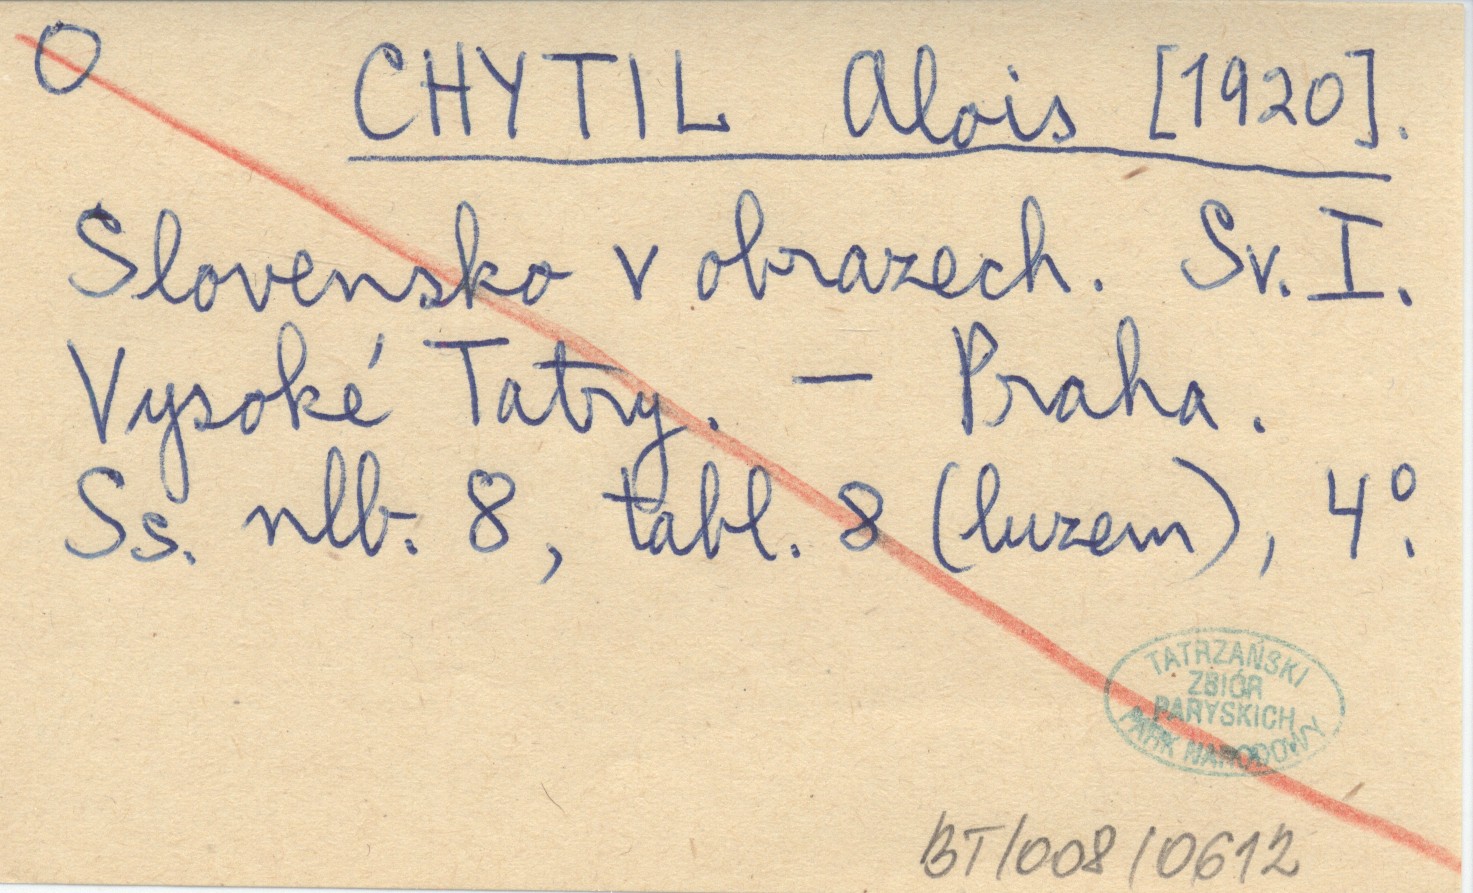 O CHYTIL Alois [1920].
Slovensko v obrazech. Sv. I.
Vysoké Tatry. — Praha.
Ss. nlb. 8, tabl. 8 (luzem), 4°.
TATRZAŃSKI
ZBIÓR
PARYSKICH
PARK NARODOWY
BT/008/0612